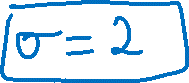 σ = 2